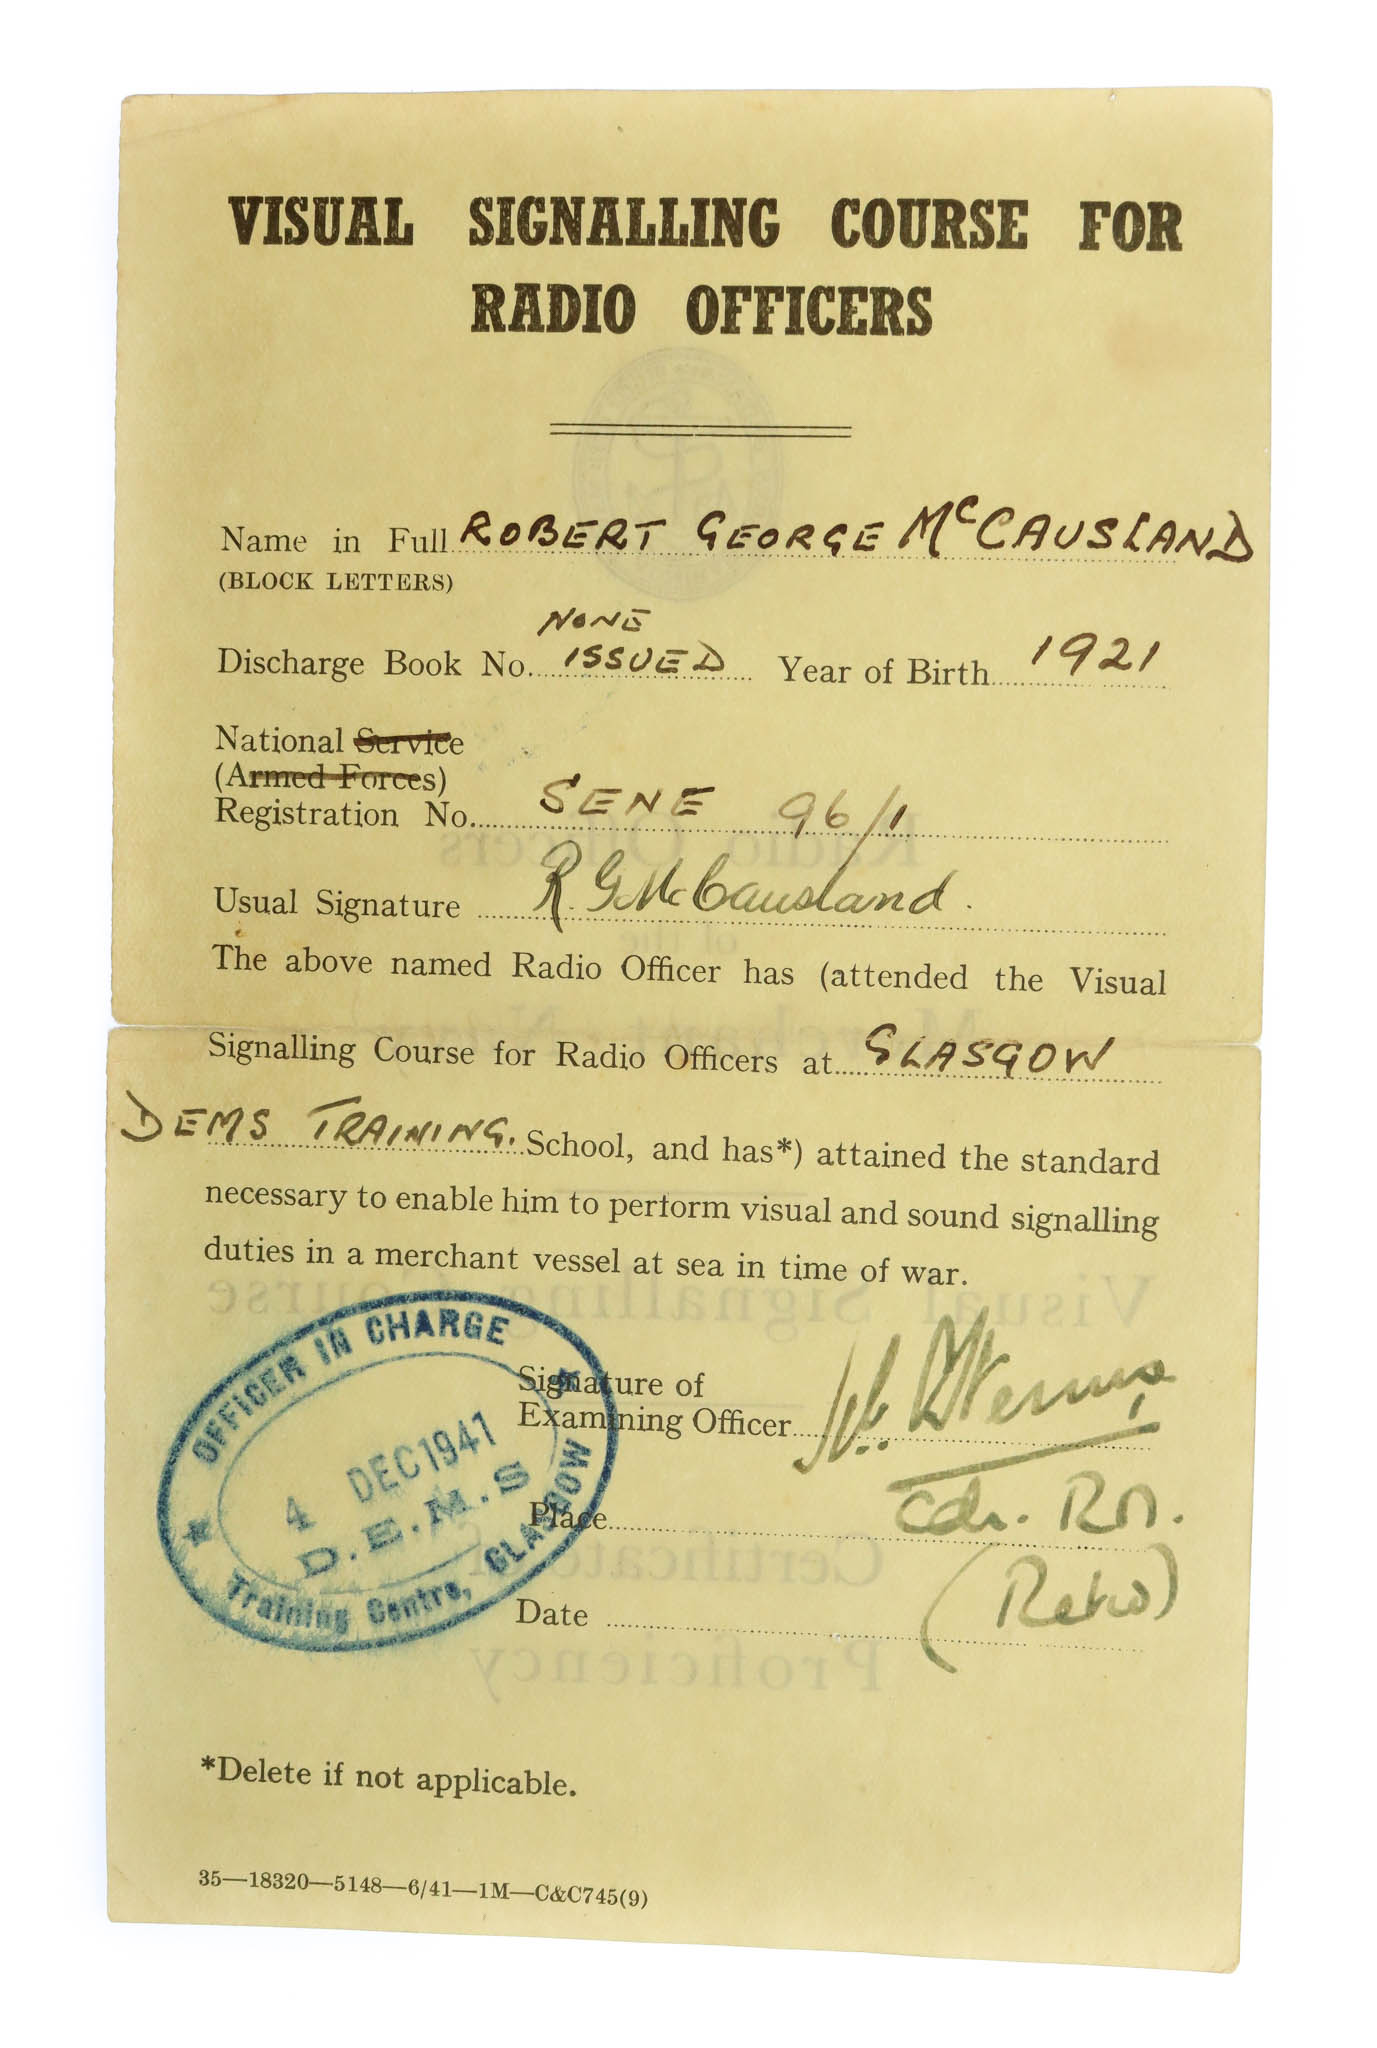 VISUAL SIGNALLING COURSE FOR
RADIO OFFICERS
Name in Full ROBERT GEORGE McCAUSLAND
(BLOCK LETTERS)
NONE
Discharge Book No. ISSUED Year of Birth 1921
National Service
(Armed Forces)
Registration No. SENE 96/1
Usual Signature R. G. McCausland.
The above named Radio Officer has (attended the Visual
Signalling Course for Radio Officers at GLASGOW
DEMS TRAINING. School, and has*) attained the standard
necessary to enable him to perform visual and sound signalling
duties in a merchant vessel at sea in time of war.
OFFICER IN CHARGE
4 DEC 1941
D.E.M.S
Training Centre, GLASGOW
Signature of
Examining Officer
Place Cdr. RN.
Date (Retd)
*Delete if not applicable.
35—18320—5148—6/41—1M—C&C745(9)